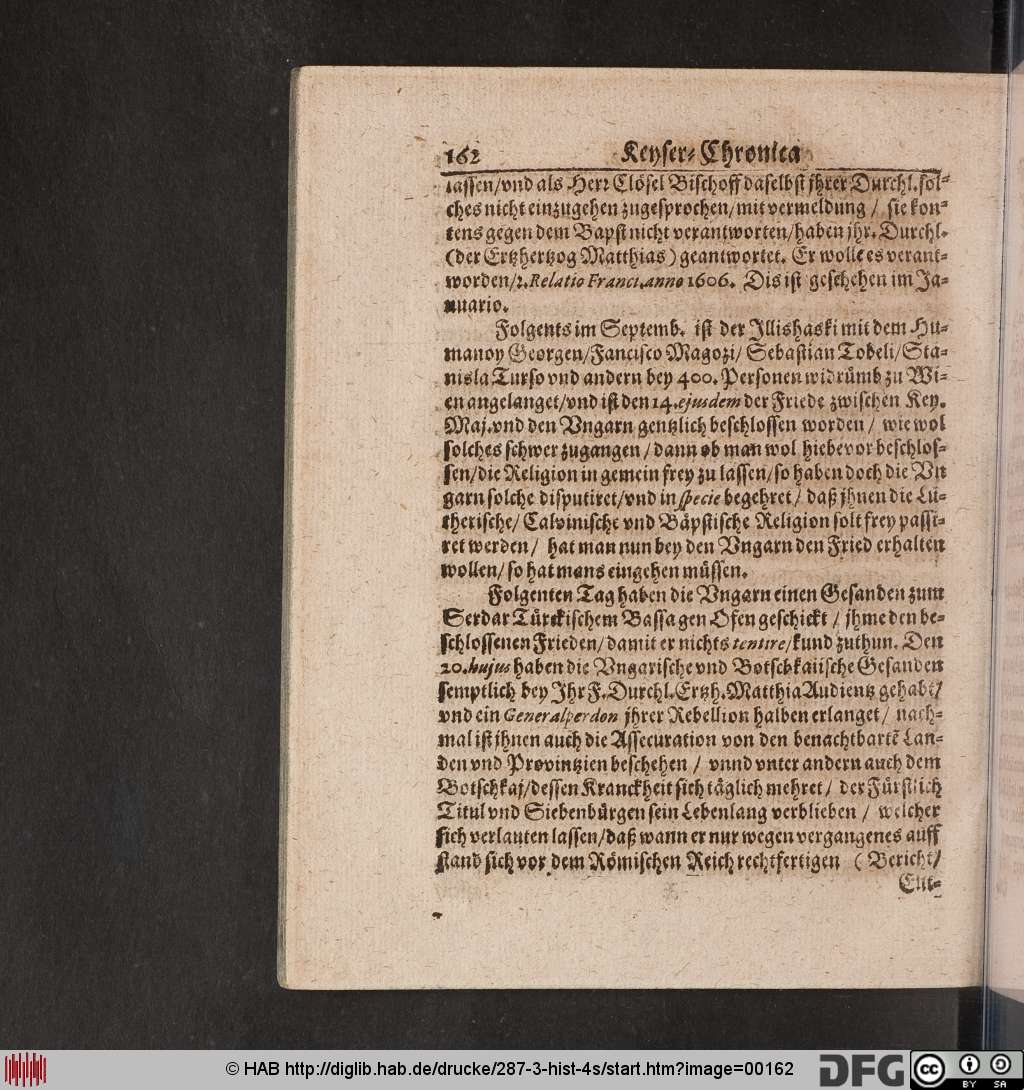 162 Keyser-Chronica
lassen/vnd als Herr Clösel Bischoff daselbst jhrer Durchl. sol-
ches nicht einzugehen zugesprochen/mit vermeldung / sie kon-
tens gegen dem Bapst nicht verantworten/haben jhr. Durchl.
(der Ertzhertzog Matthias) geantwortet. Er wolle es verant-
worden/2. Relatio Franci.anno 1606. Dis ist geschehen im Ja-
nuario.
Folgents im Septemb. ist der Illishaski mit dem Hu-
manoy Georgen/Fancisco Magozi/ Sebastian Tobeli/Sta-
nisla Turso vnd andern bey 400. Personen widrümb zu Wi-
en angelanget/vnd ist den 14. ejusdem der Friede zwischen Key.
Maj. vnd den Vngarn gentzlich beschlossen worden / wie wol
solches schwer zugangen / dann ob man wol hiebevor beschlos-
sen/die Religion in gemein frey zu lassen/so haben doch die Vn
garn solche disputiret/vnd in specie begehret / daß jhnen die Lu-
therische/ Calvinische vnd Bäpstische Religion solt frey passi-
ret werden / hat man nun bey den Vngarn den Fried erhalten
wollen/ so hat mans eingehen müssen.
Folgenten Tag haben die Vngarn einen Gesanden zum
Serdar Türckischem Bassa gen Ofen geschickt / jhme den be-
schlossenen Frieden/damit er nichts tentire/kund zuthun. Den
20. hujus haben die Vngarische vnd Botschkaiische Gesanden
semptlich bey Ihr F. Durchl. Ertzh. Matthia Audientz gehabt/
vnd ein Generalperdon jhrer Rebellion halben erlanget / nach-
mal ist jhnen auch die Assecuration von den benachtbartē Lan-
den vnd Provintzien beschehen / vnnd vnter andern auch dem
Botschkaj/dessen Kranckheit sich täglich mehret / der Fürstlich
Titul vnd Siebenbürgen sein Lebenlang verblieben / welcher
sich verlauten lassen/daß wann er nur wegen vergangenes auff
stand sich vor dem Römischen Reich rechtfertigen ( Bericht/
Ent-
© HAB http://diglib.hab.de/drucke/287-3-hist-4s/start.htm?image=00162
DFG cc BY SA